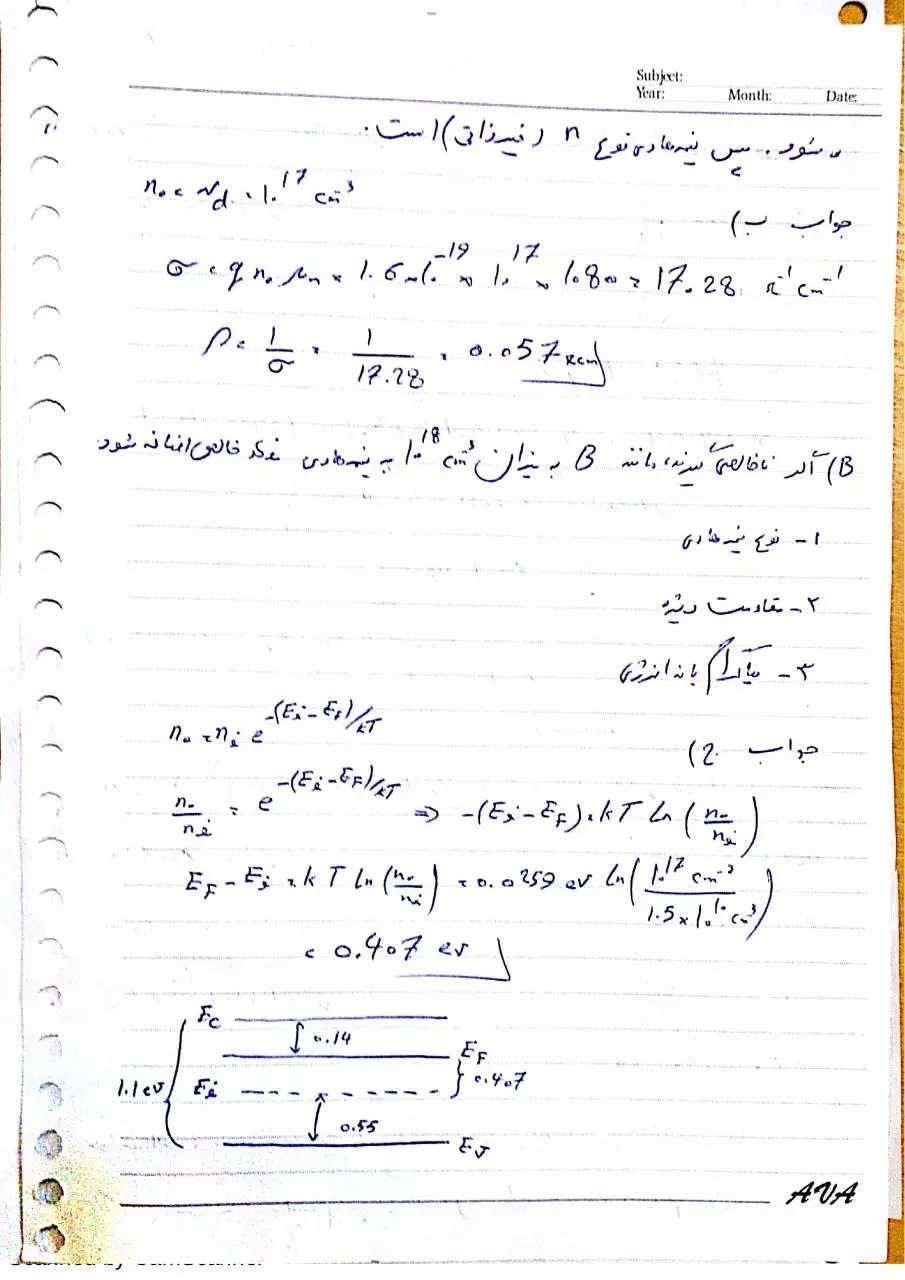 Subject:
Year: Month: Date:
می شود. پس نیمه‌هادی نوع n (غیرذاتی) است.
n₀ = Nd = 10¹⁷ cm⁻³
جواب ب)
σ = q n₀ μn = 1.6×10⁻¹⁹ × 10¹⁷ × 1080 = 17.28 Ω⁻¹cm⁻¹
ρ = 1/σ = 1/17.28 = 0.057 Ωcm
B) اگر ناخالصی گیرنده مانند B به میزان 10¹⁸ cm⁻³ به نیمه‌هادی خالص اضافه شود
۱- نوع نیمه هادی
۲- مقاومت ویژه
۳- دیاگرام باند انرژی
جواب ج)
n₀ = nᵢ e^(-(Eᵢ-E_F)/kT)
n₀/nᵢ = e^(-(Eᵢ-E_F)/kT) ⇒ -(Eᵢ-E_F) = kT Ln(n₀/nᵢ)
E_F - Eᵢ = kT Ln(n₀/nᵢ) = 0.0259 ev Ln(10¹⁷ cm⁻³ / 1.5×10¹⁰ cm⁻³)
= 0.407 ev
Ec
0.14
E_F
1.1 ev
Eᵢ
0.407
0.55
Ev
AVA